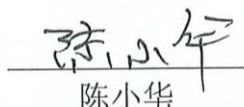 陈小华
陈小华